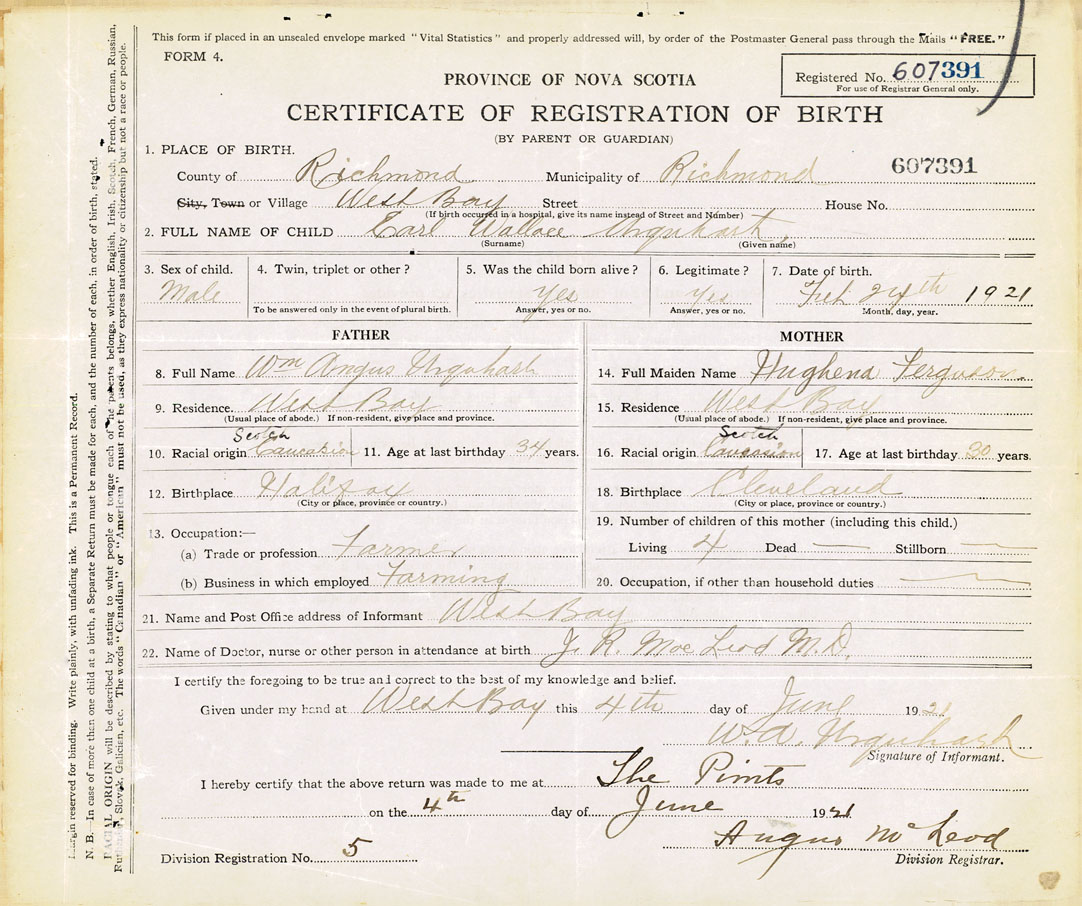 This form if placed in an unsealed envelope marked "Vital Statistics" and properly addressed will, by order of the Postmaster General pass through the Mails "FREE."
FORM 4.
PROVINCE OF NOVA SCOTIA
Registered No. 607391
For use of Registrar General only.
CERTIFICATE OF REGISTRATION OF BIRTH
(BY PARENT OR GUARDIAN)
1. PLACE OF BIRTH.
607391
County of Richmond Municipality of Richmond
City, Town or Village West Bay Street House No.
(If birth occurred in a hospital, give its name instead of Street and Number)
2. FULL NAME OF CHILD Earl Wallace Urquhart
(Surname) (Given name)
3. Sex of child. 4. Twin, triplet or other? 5. Was the child born alive? 6. Legitimate? 7. Date of birth.
Male Yes Yes Feb 24th 1921
To be answered only in the event of plural birth. Answer, yes or no. Answer, yes or no. Month, day, year.
FATHER
8. Full Name Wm Angus Urquhart
9. Residence. West Bay
(Usual place of abode.) If non-resident, give place and province.
Scotch
10. Racial origin Caucasian 11. Age at last birthday 34 years.
12. Birthplace Halifax
(City or place, province or country.)
13. Occupation:—
(a) Trade or profession Farmer
(b) Business in which employed Farming
MOTHER
14. Full Maiden Name Hughena Ferguson
15. Residence West Bay
(Usual place of abode.) If non-resident, give place and province.
Scotch
16. Racial origin Caucasian 17. Age at last birthday 30 years.
18. Birthplace Cleveland
(City or place, province or country.)
19. Number of children of this mother (including this child.)
Living 4 Dead — Stillborn —
20. Occupation, if other than household duties —
21. Name and Post Office address of Informant West Bay
22. Name of Doctor, nurse or other person in attendance at birth J. R. Mac Leod M.D.
I certify the foregoing to be true and correct to the best of my knowledge and belief.
Given under my hand at West Bay this 4th day of June 1921
W. A. Urquhart
Signature of Informant.
I hereby certify that the above return was made to me at The Points
on the 4th day of June 1921
Angus McLeod
Division Registrar.
Division Registration No. 5
Margin reserved for binding. Write plainly, with unfading ink. This is a Permanent Record.
N. B.—In case of more than one child at a birth, a Separate Return must be made for each, and the number of each, in order of birth, stated.
RACIAL ORIGIN will be described by stating to what people or tongue each of the parents belongs, whether English, Irish, Scotch, French, German, Russian,
Ruthenian, Slovak, Galician, etc. The words "Canadian" or "American" must not be used, as they express nationality or citizenship but not a race or people.